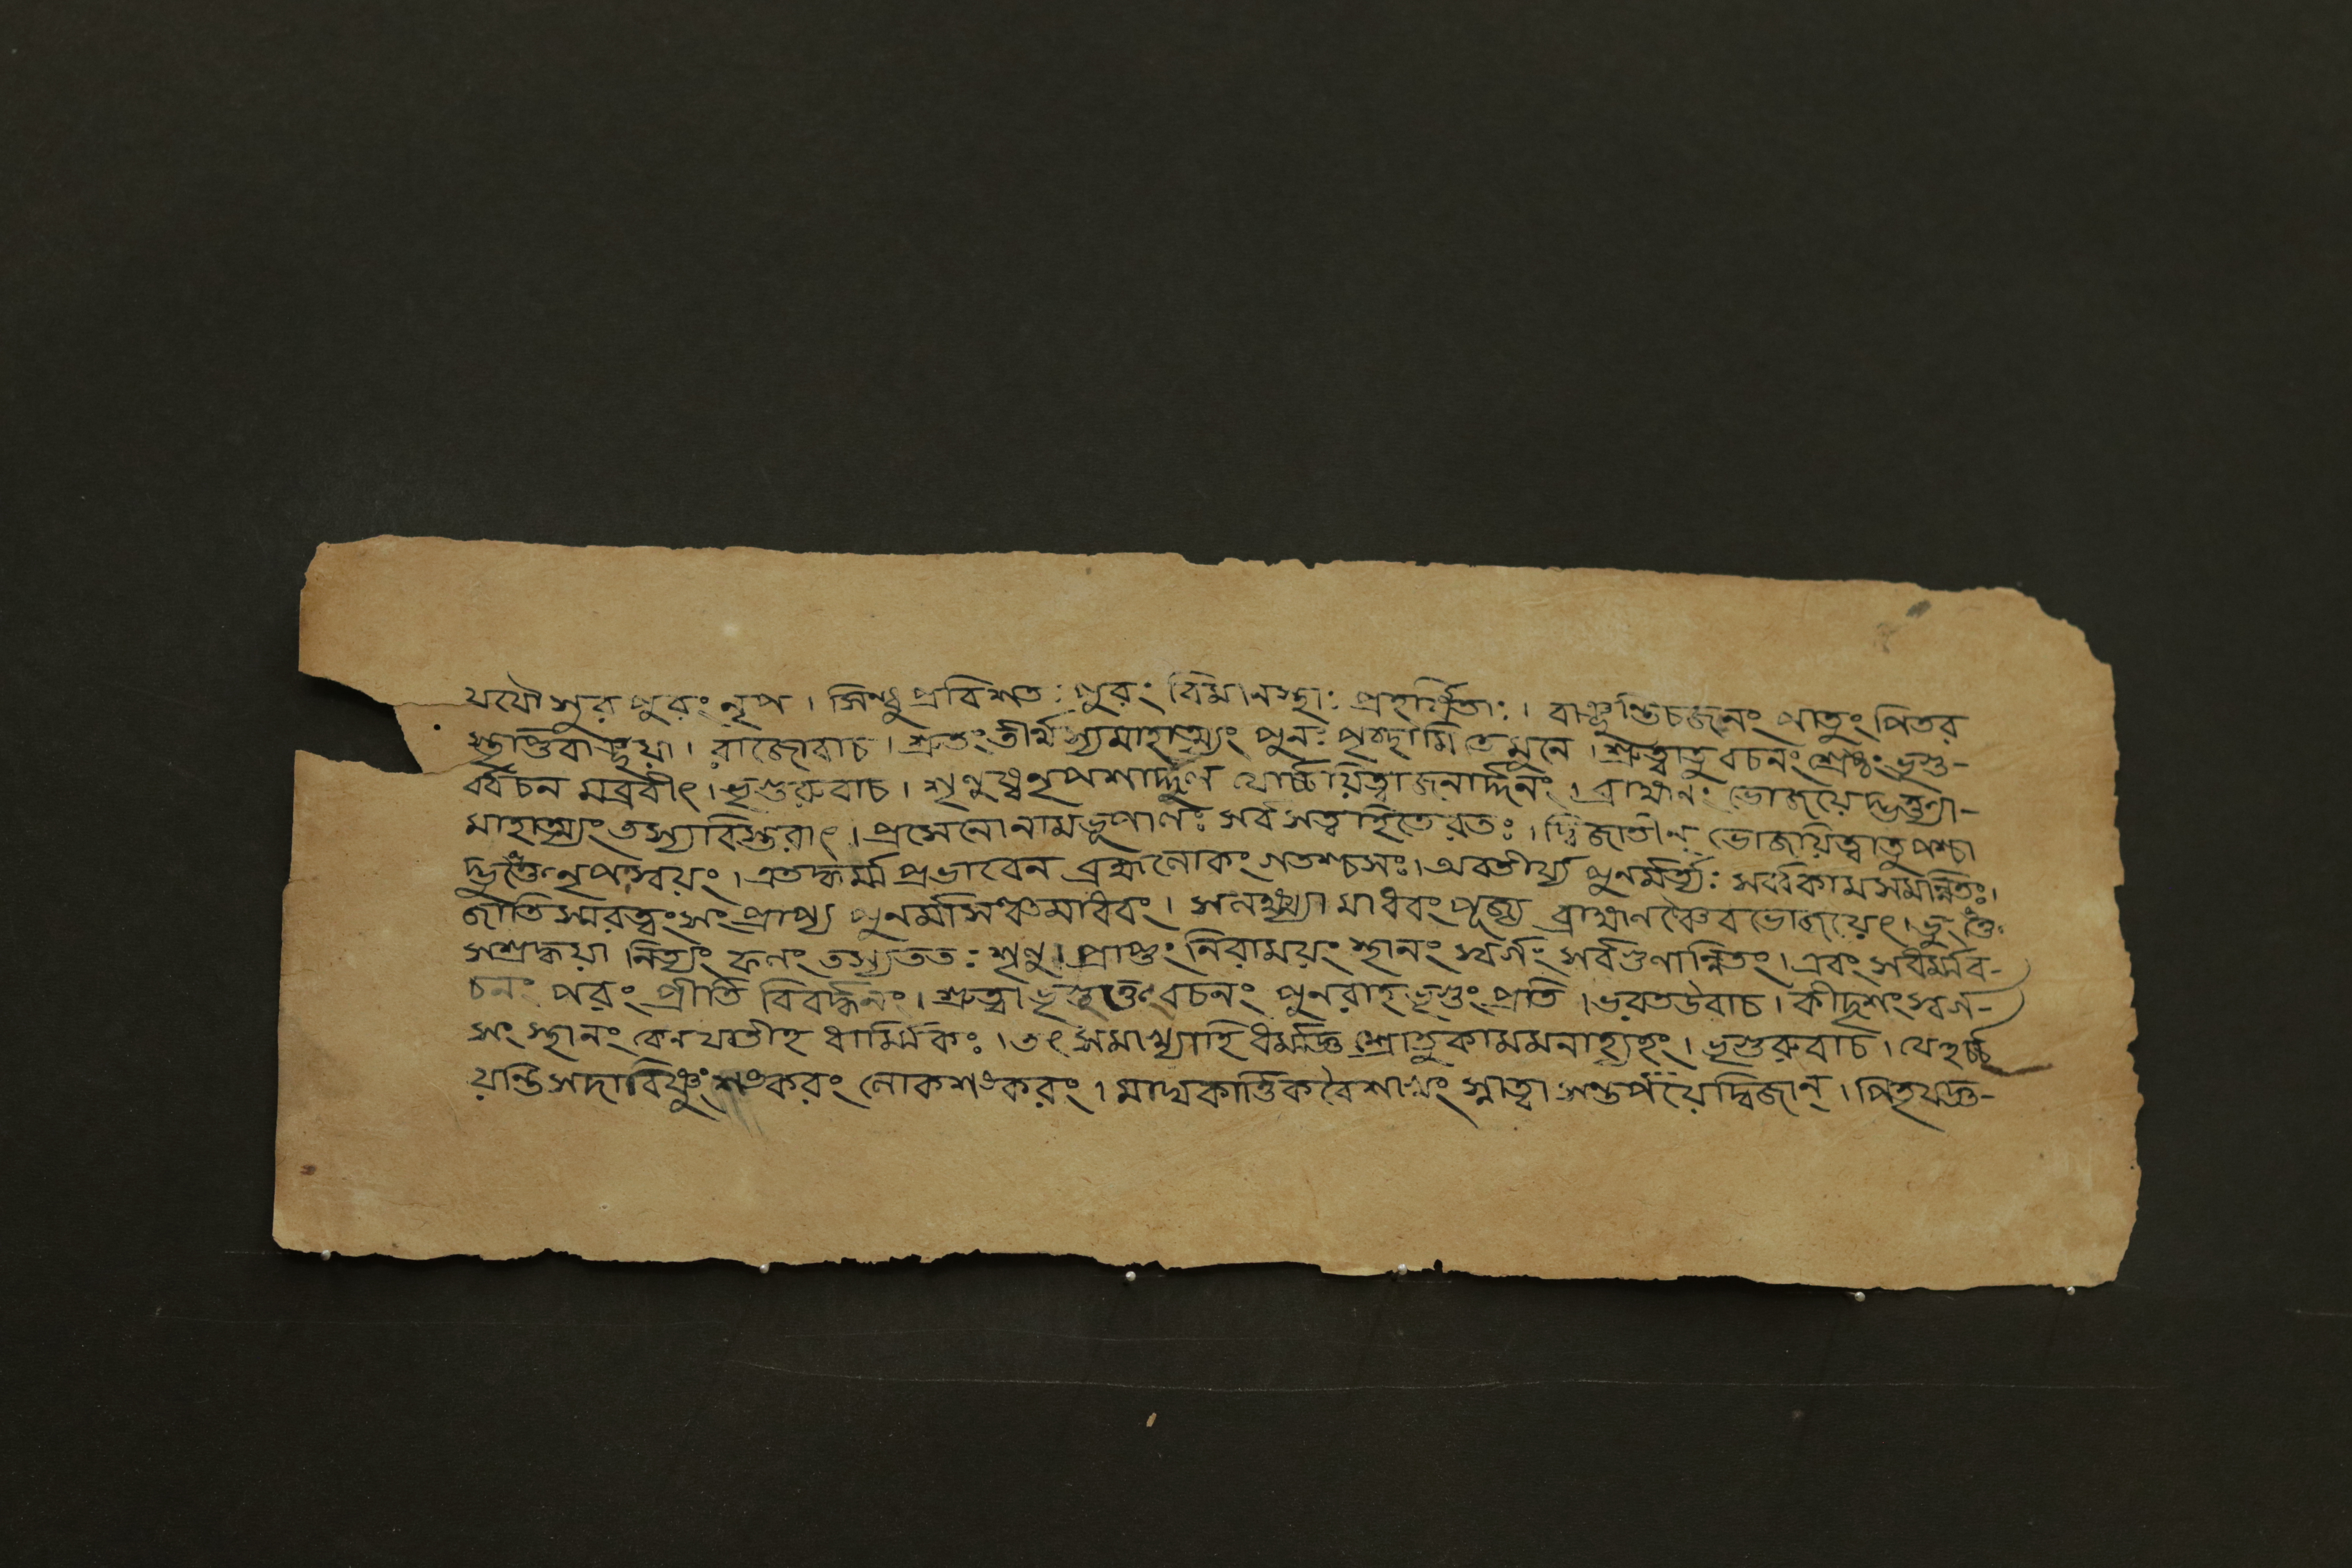 যযৌ সুরপুরং নৃপ । সিন্ধু প্রবিশতঃ পুরং বিমানস্থাঃ প্রহর্ষিতাঃ । বাঞ্ছন্তিচজনং পাতুং পিতর
স্তাণ্ডবাঞ্ছয়া । রাজোবাচ । শ্রুতং তীর্থস্যমাহাত্ম্যং পুনঃ পৃচ্ছামি তে মুনে । শ্রুত্বাতু বচনং শ্রেষ্ঠং ভৃগু-
র্ব্বচন মব্রবীৎ । ভৃগুরুবাচ । শৃণুষ্ব নৃপশার্দ্দূল যোর্চ্চয়িত্বা জনার্দ্দনং । ব্রাহ্মনং ভোজয়েদ্ভক্ত্যা-
মাহাত্ম্যং তস্যাবিস্তরাৎ । প্রসেনো নামভূপালঃ সর্ব সত্বহিতে রতঃ । দ্বিজাতীন্ ভোজয়িত্বাতু পশ্চা
দ্ভুংক্তে নৃপস্বয়ং । এতদ্ধর্ম্ম প্রভাবেন ব্রহ্মলোকং গতশ্চসঃ । অবতীর্য্য পুনর্মর্ত্যঃ সর্ব্বকামসমন্নিতঃ ।
জাতিস্মরত্বং সং প্রাপ্য পুনর্মাসঞ্চমাধবং । সনখ্খ্যা মাধবং পূজ্য ব্রাহ্মনঞ্চৈব ভোজয়েৎ । ভুংক্তে
সশ্রদ্ধয়া নিত্যং ফলং তস্যততঃ শৃণু । প্রাপ্তুং নিরাময়ং স্থানং স্বর্গং সর্বগুণান্নিতং । এবং সর্বধর্ম্মব-
চনং পরং প্রীতি বিবর্দ্ধনং । শ্রুত্বা ভৃগূক্তং বচনং পুনরাহ ভৃগুং প্রতি । ভরতউবাচ । কীদৃশং স্বর্গ-
সং স্থানং কেনযাতীহ ধার্ম্মিকঃ । তৎ সমাখ্যাহি ধর্ম্মজ্ঞ শ্রোতুকামমনাহ্যহং । ভৃগুরুবাচ । যেহর্চ্চ
য়ন্তি সদাবিষ্ণুং শংকরং লোকশংকরং । মাঘকার্ত্তিকবৈশাখং স্নাত্বা সন্তর্পয়েদ্বিজান্ । পিতৃযজ্ঞ-